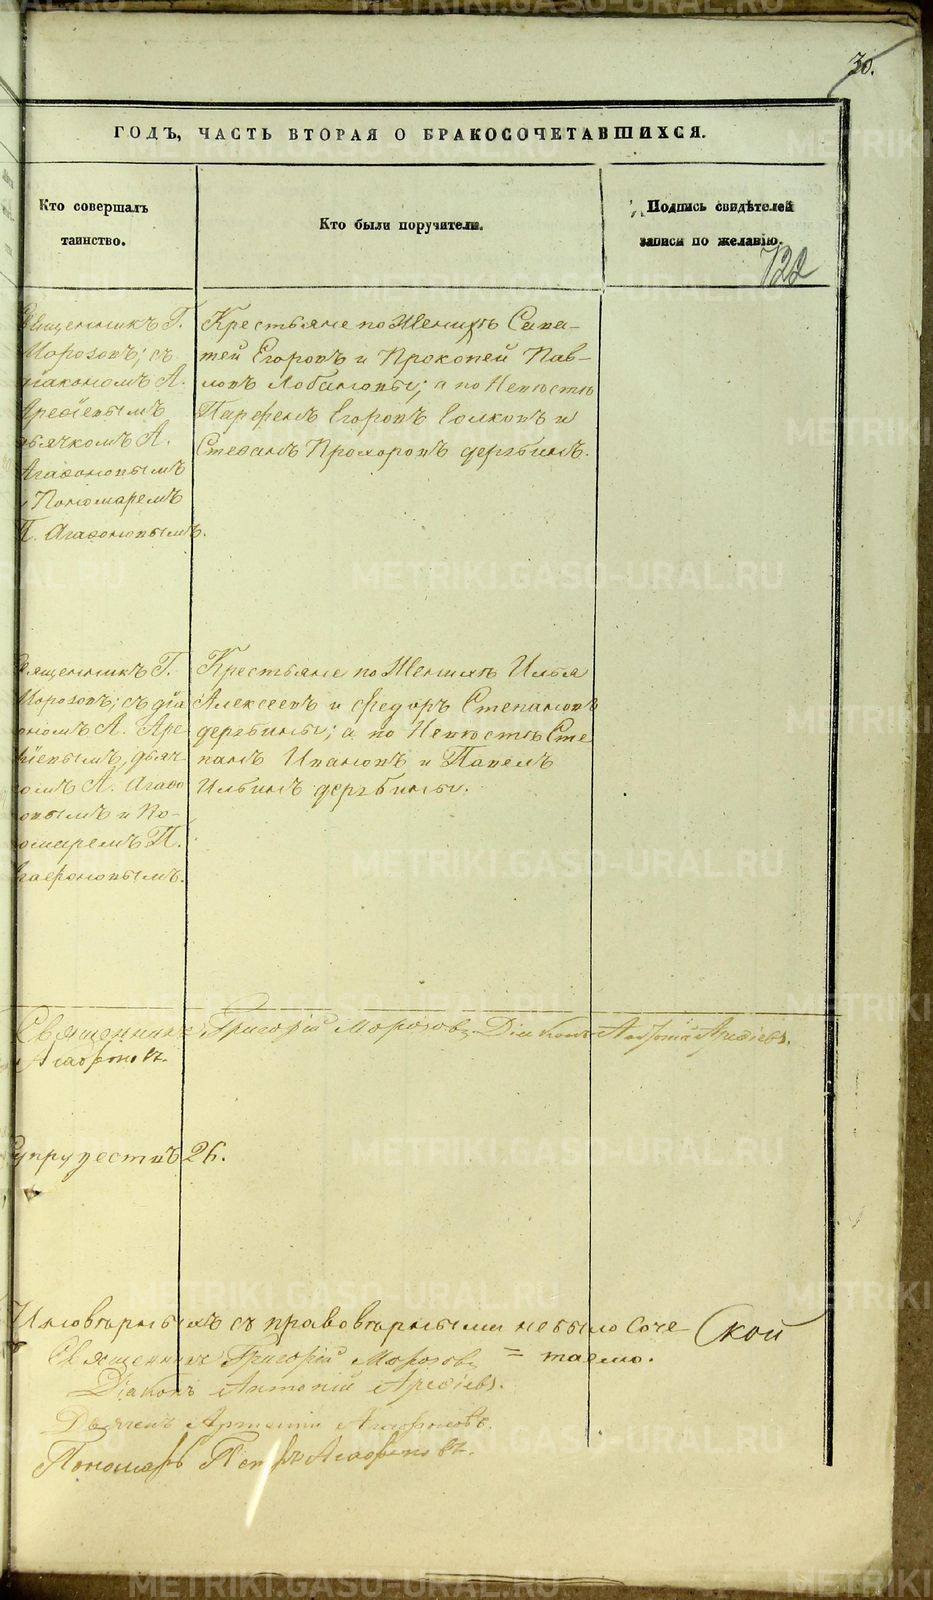 30.
ГОДЪ, ЧАСТЬ ВТОРАЯ О БРАКОСОЧЕТАВШИХСЯ.
Кто совершалъ
таинство.
Кто были поручители.
Подпись свидѣтелей
записи по желанію.
722
Священникъ Г.
Морозовъ; съ
діакономъ А.
Арефіевымъ
дьячкомъ А.
Агафоновымъ
и Пономаремъ
П. Агафоновымъ.
Крестьяне по Женихѣ Сава-
тей Егоровъ и Прокопей Пав-
ловъ Лобановы; а по Невѣстѣ
Парфенъ Егоровъ Волковъ и
Стефанъ Прохоровъ дерябинъ.
Священникъ Г.
Морозовъ; съ діа
кономъ А. Аре-
фіевымъ, дьяч-
комъ А. Агафо
новымъ и По-
номаремъ П.
Агафоновымъ.
Крестьяне по Женихѣ Илья
Алексеевъ и Федоръ Степановъ
дерябины; а по Невѣстѣ Сте
панъ Ивановъ и Павелъ
Ильинъ дерябины.
Священникъ Григорій Морозовъ Діаконъ Арефіевъ.
Агафоновъ.
Супружествъ 26.
Иновѣрныхъ съ православными небыло соче
= таемо.
Священникъ Григорій Морозовъ
Діаконъ Антоній Арефіевъ.
Дьячекъ Артемій Агафоновъ.
Пономарь Петръ Агафоновъ.
METRIKI.GASO-URAL.RU